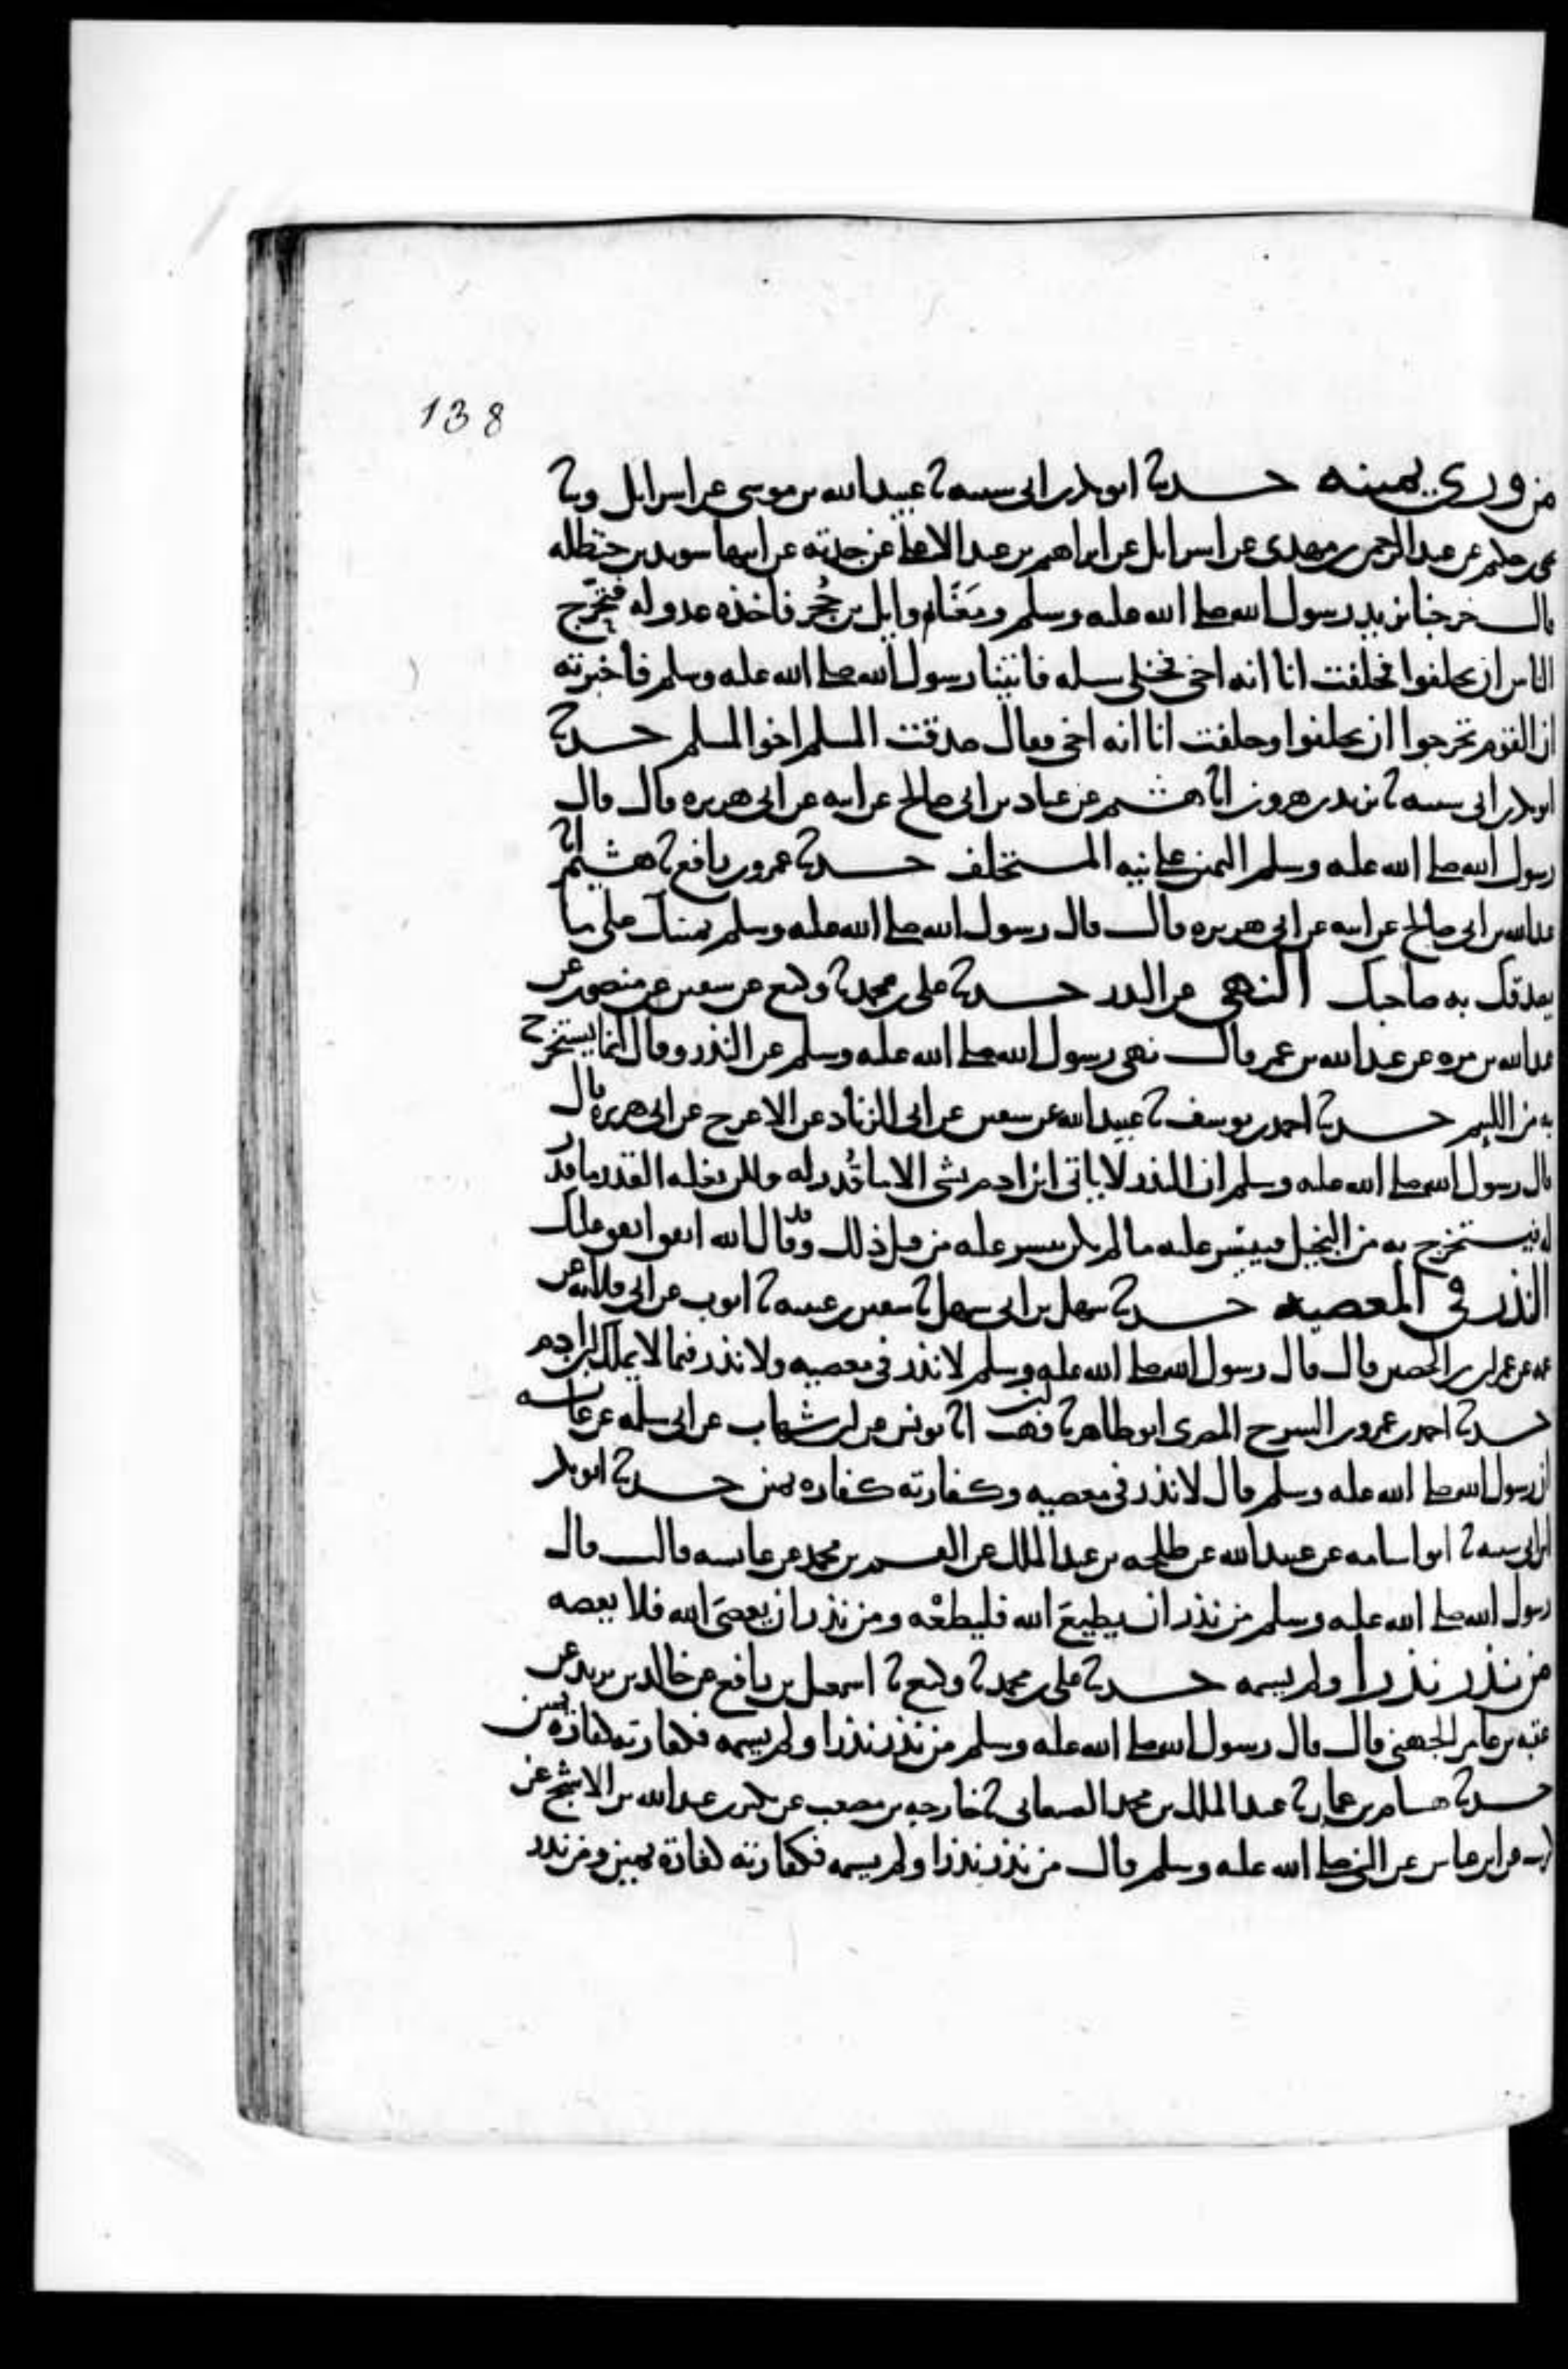 138
من ورى يمينه حدثنا ابو بكر بن ابى شيبة ثنا عبيد الله بن موسى عن اسرائيل وثنا
يحيى بن حكيم عن عبد الرحمن بن مهدى عن اسرائيل عن ابراهيم بن عبد الاعلى عن جدته عن ابيها سويد بن حنظلة
قال خرجنا نريد رسول الله صلى الله عليه وسلم ومَعَنَا وايل بن حُجْر فاخذه عدو له فتحرّج
الناس ان يحلفوا فحلفت انا انه اخى فخلى سبيله فاتينا رسول الله صلى الله عليه وسلم فاخبرته
ان القوم تحرجوا ان يحلفوا وحلفت انا انه اخى فقال صدقت المسلم اخوا المسلم حدثنا
ابو بكر بن ابى شيبة ثنا يزيد بن هرون انا هشيم عن عباد بن ابى صالح عن ابيه عن ابى هريرة قال قال
رسول الله صلى الله عليه وسلم اليمين على نية المستحلف حدثنا عمرو بن رافع ثنا هشيم انا
عبد الله بن ابى صالح عن ابيه عن ابى هريرة قال قال رسول الله صلى الله عليه وسلم يمينك على ما
يصدقك به صاحبك النهى عن النذر حدثنا على بن محمد ثنا وكيع عن سفين عن منصور عن
عبد الله بن مرة عن عبد الله بن عمر قال نهى رسول الله صلى الله عليه وسلم عن النذر وقال انما يستخرج
به من اللئيم حدثنا احمد بن يوسف ثنا عبيد الله عن سفين عن ابى الزناد عن الاعرج عن ابى هريرة قال
قال رسول الله صلى الله عليه وسلم ان النذر لا ياتى ابن ادم بشى الا ما قُدر له ولكن يغلبه القدر ما قدر
له فيستخرج به من البخيل فييسّر عليه ما لم يكن ييسر عليه من قبل ذلك وقد قال الله انفق انفق عليك
النذر في المعصية حدثنا سهل بن ابى سهل ثنا سفين بن عيينة ثنا ايوب عن ابى قلابة عن
عمه عن عمران بن الحصين قال قال رسول الله صلى الله عليه وسلم لا نذر فى معصية ولا نذر فيما لا يملك ابن ادم
حدثنا احمد بن عمرو بن السرح المصرى ابو طاهر ثنا ابن وهب انا يونس عن ابن شهاب عن ابى سلمة عن عائشة
ان رسول الله صلى الله عليه وسلم قال لا نذر فى معصية وكفارته كفارة يمين حدثنا ابو بكر
ابن ابى شيبة ثنا ابو اسامة عن عبيد الله عن طلحة بن عبد الملك عن القسم بن محمد عن عائشة قالت قال
رسول الله صلى الله عليه وسلم من نذر ان يطيعَ الله فليطعْه ومن نذر ان يعصىَ الله فلا يعصه
من نذر نذرا ولم يسمه حدثنا على بن محمد ثنا وكيع ثنا اسمعيل بن رافع عن خالد بن يزيد عن
عقبة بن عامر الجهنى قال قال رسول الله صلى الله عليه وسلم من نذر نذرا ولم يسمه فكفارته كفارة يمين
حدثنا هشام بن عمار ثنا عبد الملك بن محمد الصنعانى ثنا خارجة بن مصعب عن بكير بن عبد الله بن الاشج عن
كريب عن ابن عباس عن النبى صلى الله عليه وسلم قال من نذر نذرا ولم يسمه فكفارته كفارة يمين ومن نذر